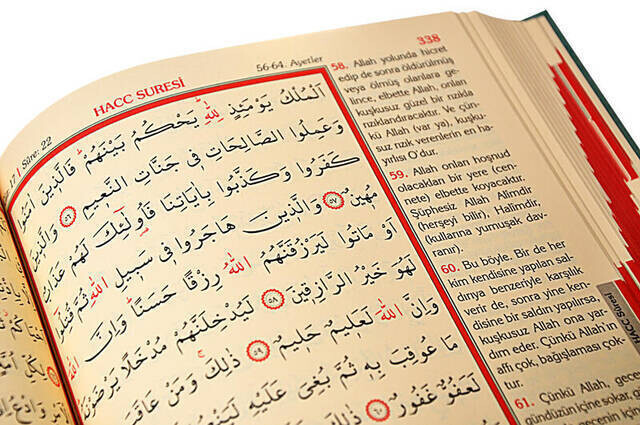 338
56-64. Ayetler
HACC SURESİ
Sûre: 22
اَلْمُلْكُ يَوْمَئِذٍ لِلّٰهِ يَحْكُمُ بَيْنَهُمْ فَالَّذِينَ اٰمَنُوا
وَعَمِلُوا الصَّالِحَاتِ فِي جَنَّاتِ النَّعِيمِ ٥٦ وَالَّذِينَ
كَفَرُوا وَكَذَّبُوا بِاٰيَاتِنَا فَاُولٰئِكَ لَهُمْ عَذَابٌ
مُهِينٌ ٥٧ وَالَّذِينَ هَاجَرُوا فِي سَبِيلِ اللّٰهِ ثُمَّ قُتِلُوا
اَوْ مَاتُوا لَيَرْزُقَنَّهُمُ اللّٰهُ رِزْقًا حَسَنًا وَاِنَّ
لَهُوَ خَيْرُ الرَّازِقِينَ ٥٨ لَيُدْخِلَنَّهُمْ مُدْخَلًا يَرْضَوْنَهُ
وَاِنَّ اللّٰهَ لَعَلِيمٌ حَلِيمٌ ٥٩ ذٰلِكَ وَمَنْ عَاقَبَ
مَا عُوقِبَ بِهِ ثُمَّ بُغِيَ عَلَيْهِ
لَعَفُوٌّ غَفُورٌ ٦٠ ذٰلِكَ
58. Allah yolunda hicret
edip de sonra öldürülmüş
veya ölmüş olanlara ge-
lince, elbette Allah, onları
kuşkusuz güzel bir rızıkla
rızıklandıracaktır. Ve çün-
kü Allah (var ya), kuşku-
suz rızık verenlerin en ha-
yırlısı O'dur.
59. Allah onları hoşnud
olacakları bir yere (cen-
nete) elbette koyacaktır.
Şüphesiz Allah Alîmdir
(herşeyi bilir), Halîmdir,
(kullarına yumuşak dav-
ranır).
60. Bu böyle. Bir de her
kim kendisine yapılan sal-
dırıya benzeriyle karşılık
verir de, sonra yine ken-
disine bir saldırı yapılırsa,
kuşkusuz Allah ona yar-
dım eder. Çünkü Allah'ın
affı çok, bağışlaması çok-
tur.
61. Çünkü Allah, gece
gündüzün içine sokar,
HACC Sûresi